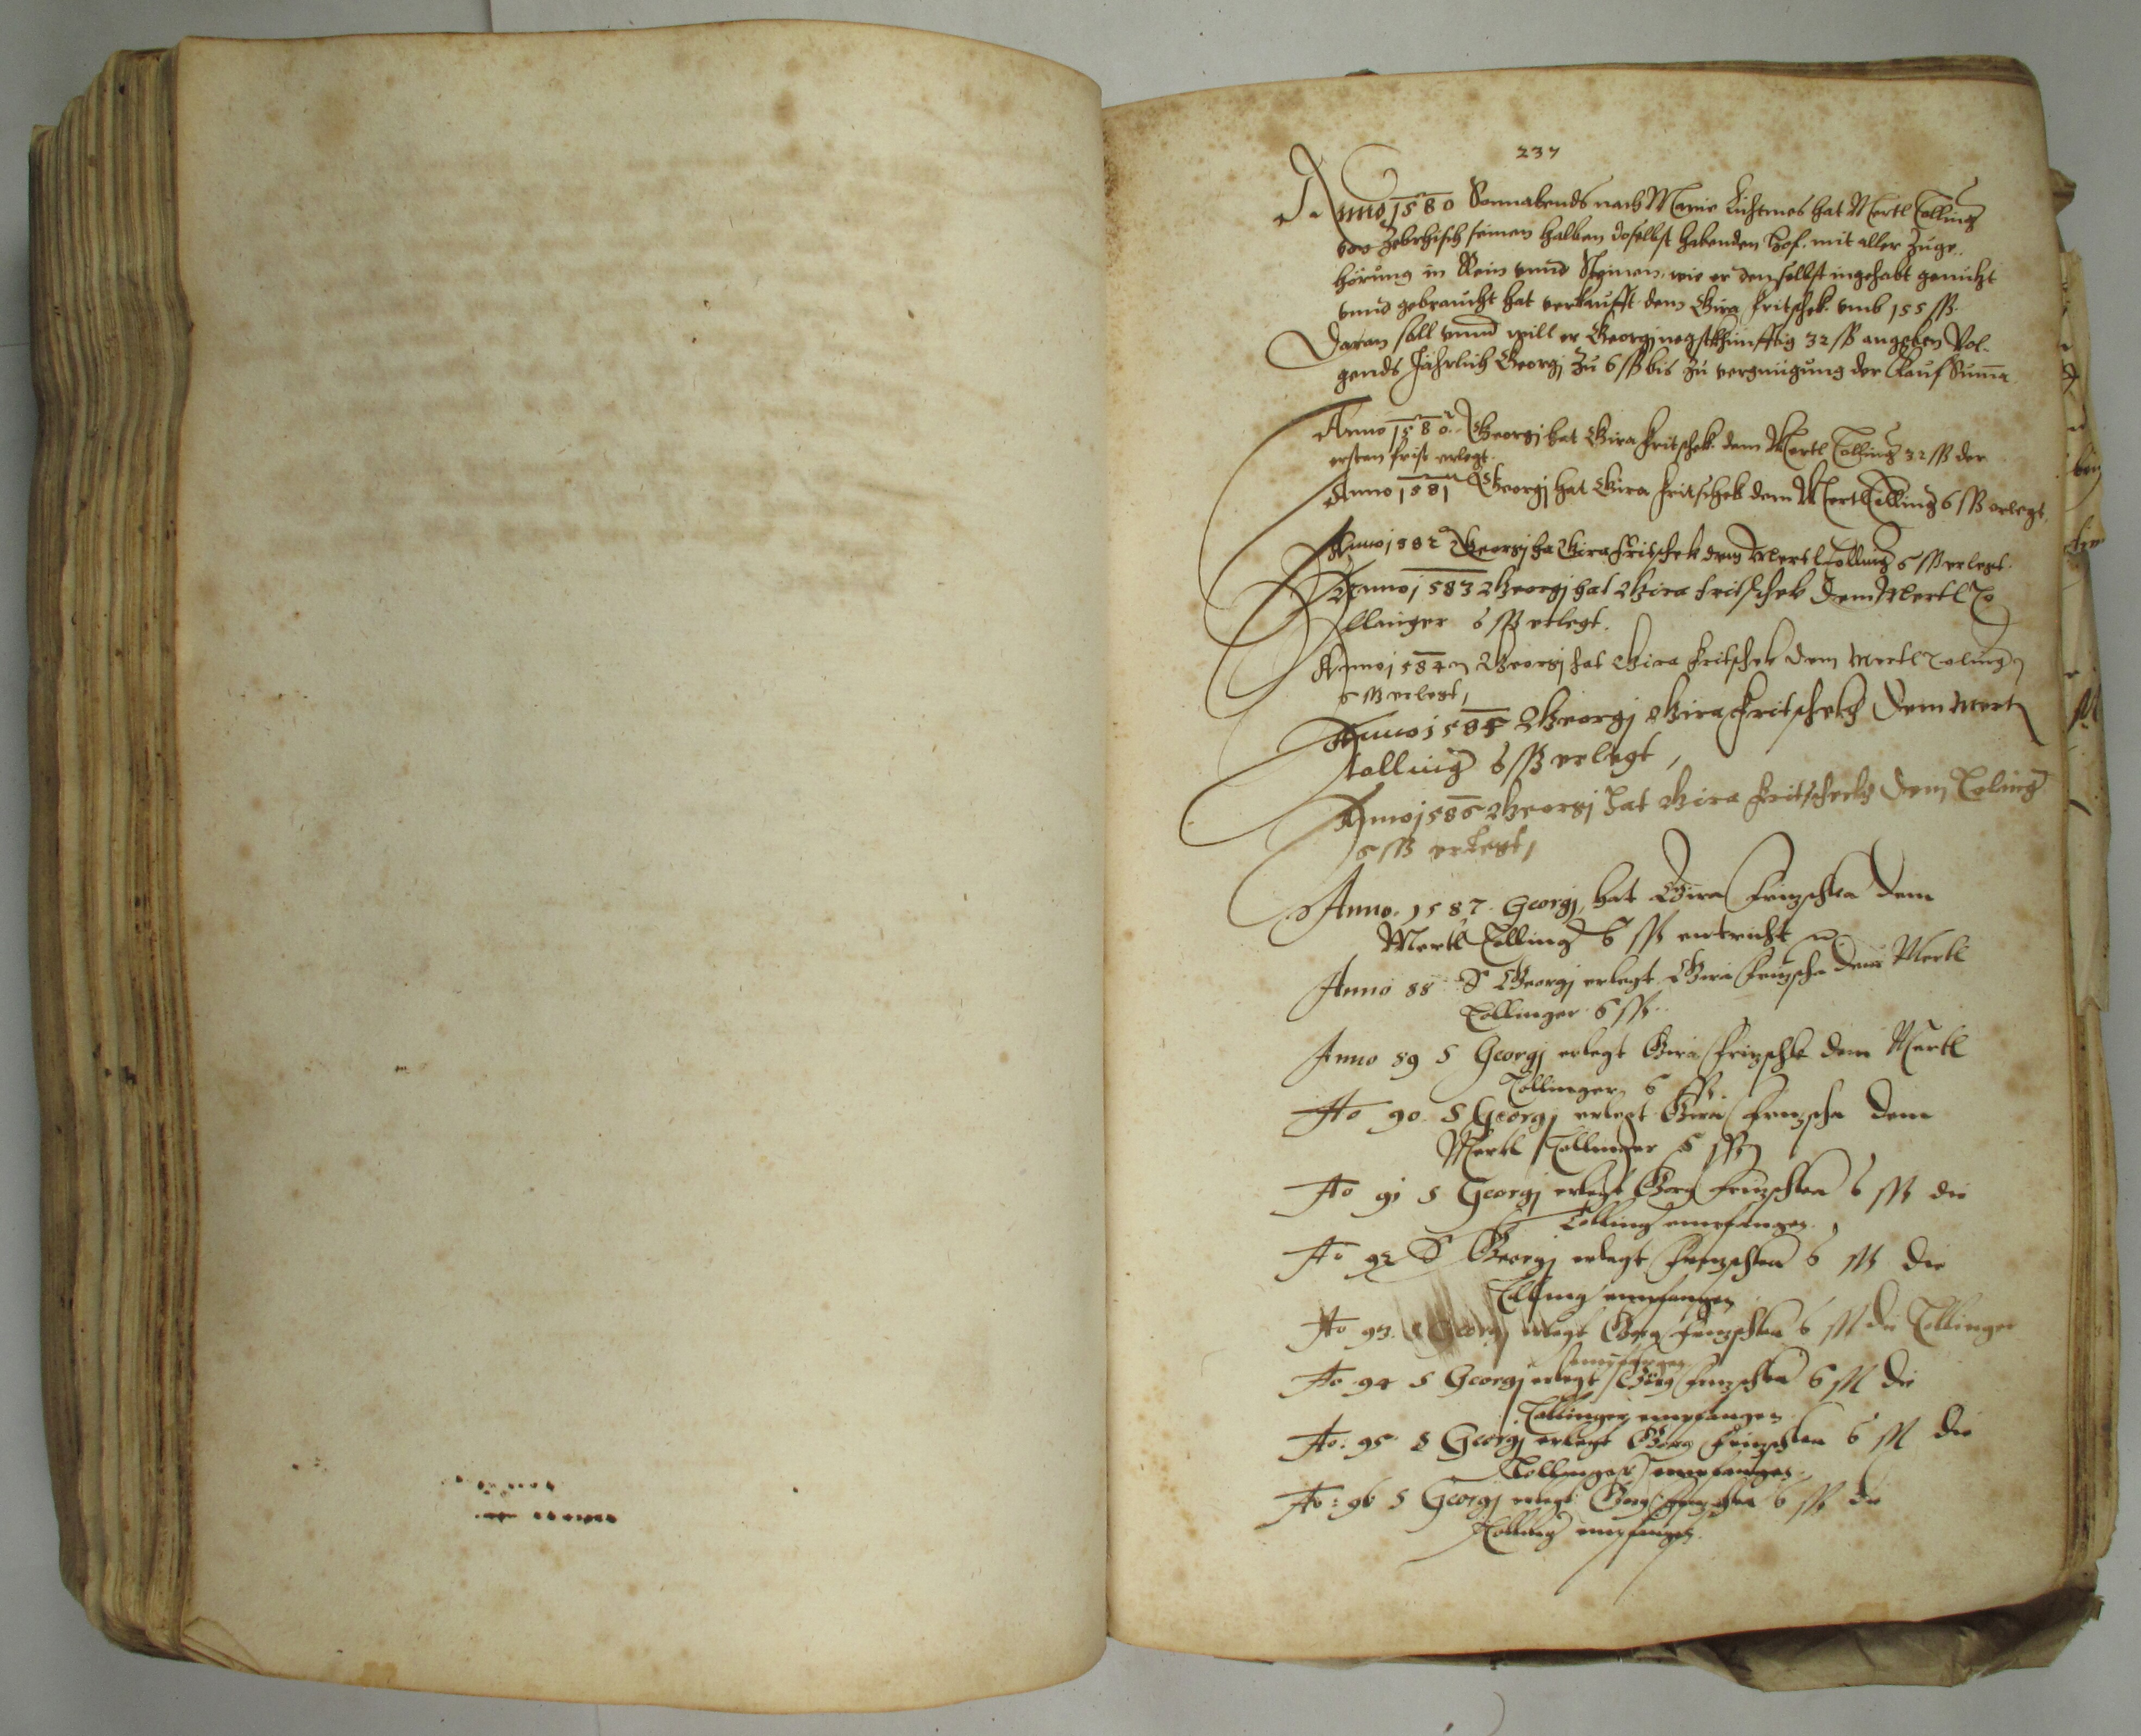 237
Anno 1580 Sonnabends nach Marie Lichtmes hat Mertl Tolling
von Zebrhisch seinen halben doselbst habenden Hof mit aller Zuge-
hörung in Rein vnnd Steinen, wie er denselbst ingehabt genützt
vnnd gebraucht hat verkaufft dem Gira Fritschek vmb 155 ß
Daran soll vnnd will er Georgj negstkhünfftig 32 ß angeben Vol-
gends Jährlich Georgj zu 6 ß bis zu vergnügung der Kauf Summa.
Anno 1580. Georgj hat Gira Fritschek dem Mertl Tolling 32 ß der
ersten frist erlegt.
Anno 1581 Georgj hat Gira Fritschek dem Mertl Tolling 6 ß erlegt.
Anno 1582 Georgj ha Gira Fritschek dem Mertl Tolling 6 ß erlegt.
Anno 1583 Georgj hat Gira Fritschek dem Mertl To
llinger 6 ß erlegt.
Anno 1584 Georgj hat Gira Fritschek dem Mertl Toling
6 ß erlegt,
Anno 1585 Georgj Gira Fritschek dem Mert
Tolling 6 ß erlegt,
Anno 1586 Georgj hat Gira Fritscheck dem Toling
6 ß erlegt,
Anno. 1587. Georgj, hat Gira Frizschka dem
Mertl Tolling 6 ß entricht
Anno 88 S Georgj erlegt Gira Frizscha dem Mertl
Tollinger 6 ß
Anno 89 S Georgj erlegt Gira Frizschk dem Mertl
Tollinger 6 ß.
Ao 90. S Georgj erlegt Gira Frizscha dem
Mertl Tollinger 6 ß
Ao 91 S Georgj erlegt Georg Frizschka 6 ß die
Tolling empfangen.
Ao 92 S Georgj erlegt Frizschka 6 ß die
Tolling empfangen
Ao 93. S Georgj erlegt Georg Frizschka 6 ß die Tollinger
empfangen
Ao 94 S Georgj erlegt Görg Frizschka 6 ß die
Tollinger empfangen
Ao: 95 S Georgj erlegt Georg Frizschka 6 ß die
Tollinger empfangen.
Ao: 96 S Georgj erlegt Georg Frizschka 6 ß die
Tolling empfangen.